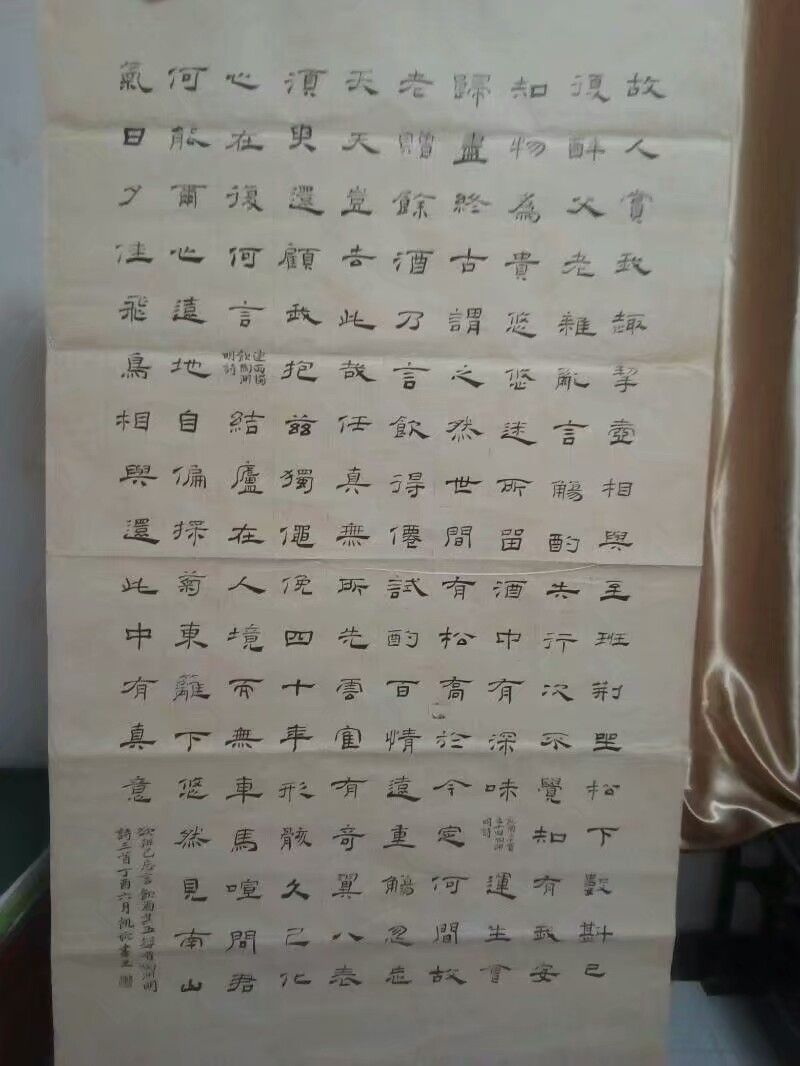 故人賞我趣挈壺相與至班荊坐松下數斟已
復醉父老雜亂言觴酌失行次不覺知有我安
知物為貴悠悠迷所留酒中有深味
飲酒二十首
其十四陶淵
明詩
運生會
歸盡終古謂之然世間有松高於今定何間故
老贈餘酒乃言飲得僊試酌百情遠重觴忽忘
天天豈去此哉任真無所先雲隺有奇翼八表
須臾還顧我抱茲獨僶俛四十年形骸久已化
心在復何言
連雨獨
飲陶淵
明詩
結廬在人境而無車馬喧問君
何能爾心遠地自偏採菊東籬下悠然見南山
氣日夕佳飛鳥相與還此中有真意
欲辨已忘言飲酒其五錄晉陶淵明
詩三首丁酉六月凱書之